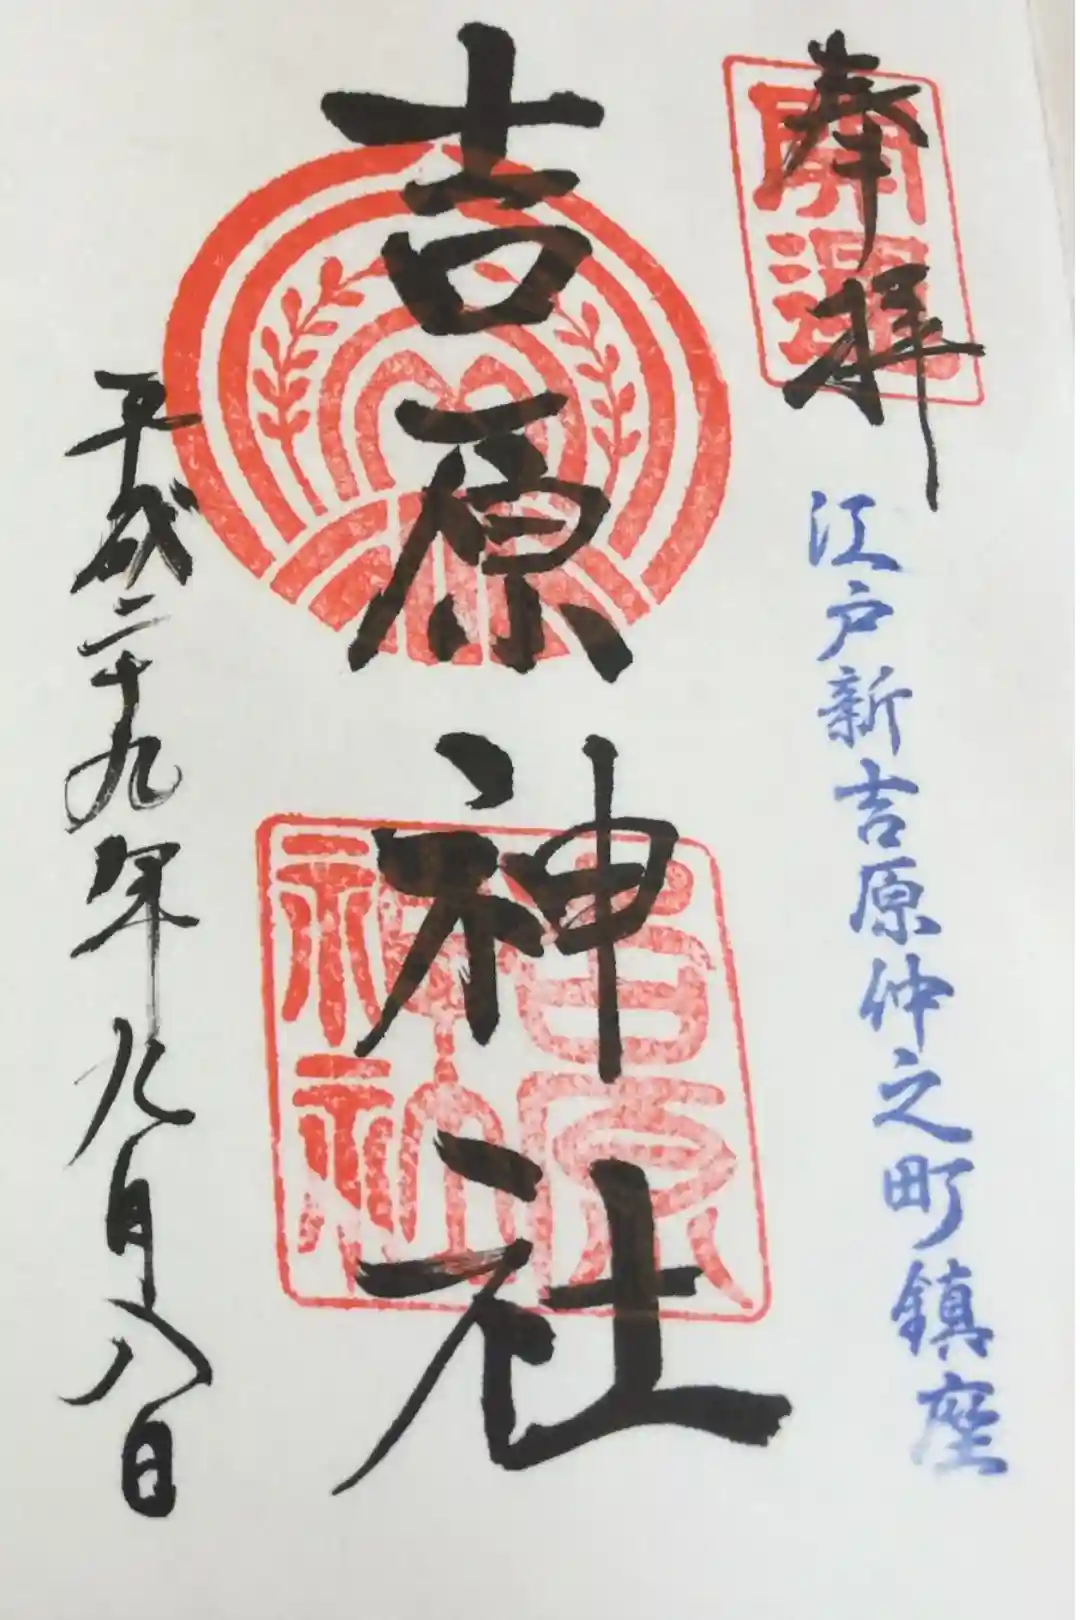 奉拝
開運
江戸新吉原仲之町鎮座
吉原神社
吉原
神社
平成二十九年九月八日